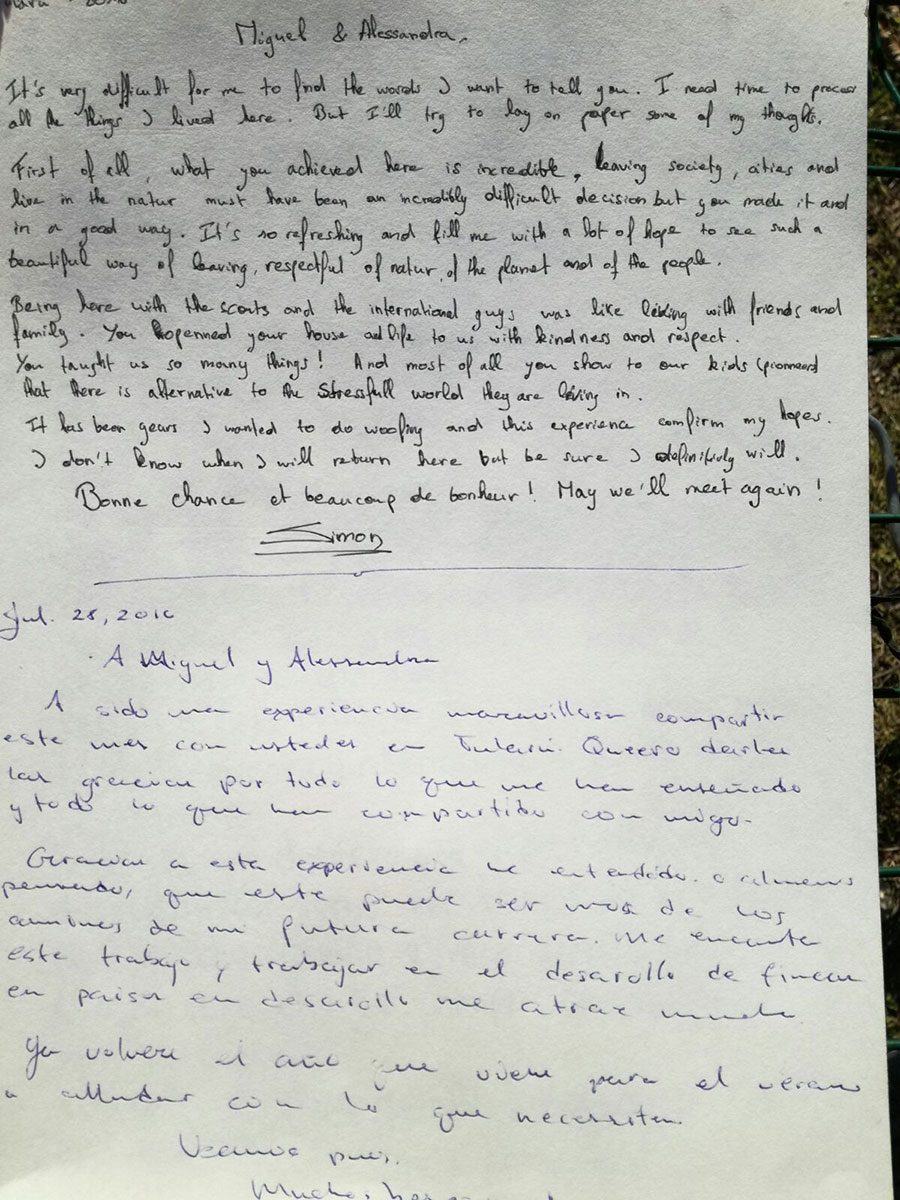 Miguel & Alessandra,
It's very difficult for me to find the words I want to tell you. I need time to process
all the things I lived here. But I'll try to lay on paper some of my thoughts.
First of all, what you achieved here is incredible, leaving society, cities and
live in the natur must have been an incredibly difficult decision but you made it and
in a good way. It's so refreshing and fill me with a lot of hope to see such a
beautiful way of leaving, respectful of natur, of the planet and of the people.
Being here with the scouts and the international guys was like living with friends and
family. You openned your house and life to us with kindness and respect.
You taught us so many things! And most of all you show to our kids (pionneers)
that there is alternative to the stressfull world they are living in.
It has been years I wanted to do woofing and this experience confirm my hopes.
I don't know when I will return here but be sure I definitivly will.
Bonne chance et beaucoup de bonheur! May we'll meet again!
Simon
Jul. 28, 2016
A Miguel y Alessandra
A sido una experiencia maravillosa compartir
este mes con ustedes en Quiero darles
las gracias por todo lo que me han enseñado
y todo lo que han compartido con migo.
Gracias a esta experiencia he entendido, o almenos
pensado, que este puede ser uno de los
caminos de mi futura carrera. Me encanta
este trabajo y trabajar en el desarollo de fincas
en paises en desarollo me atrae mucho.
Ya volvere el año que viene para el verano
a alludar con lo que necessiten.
Veamos pues.